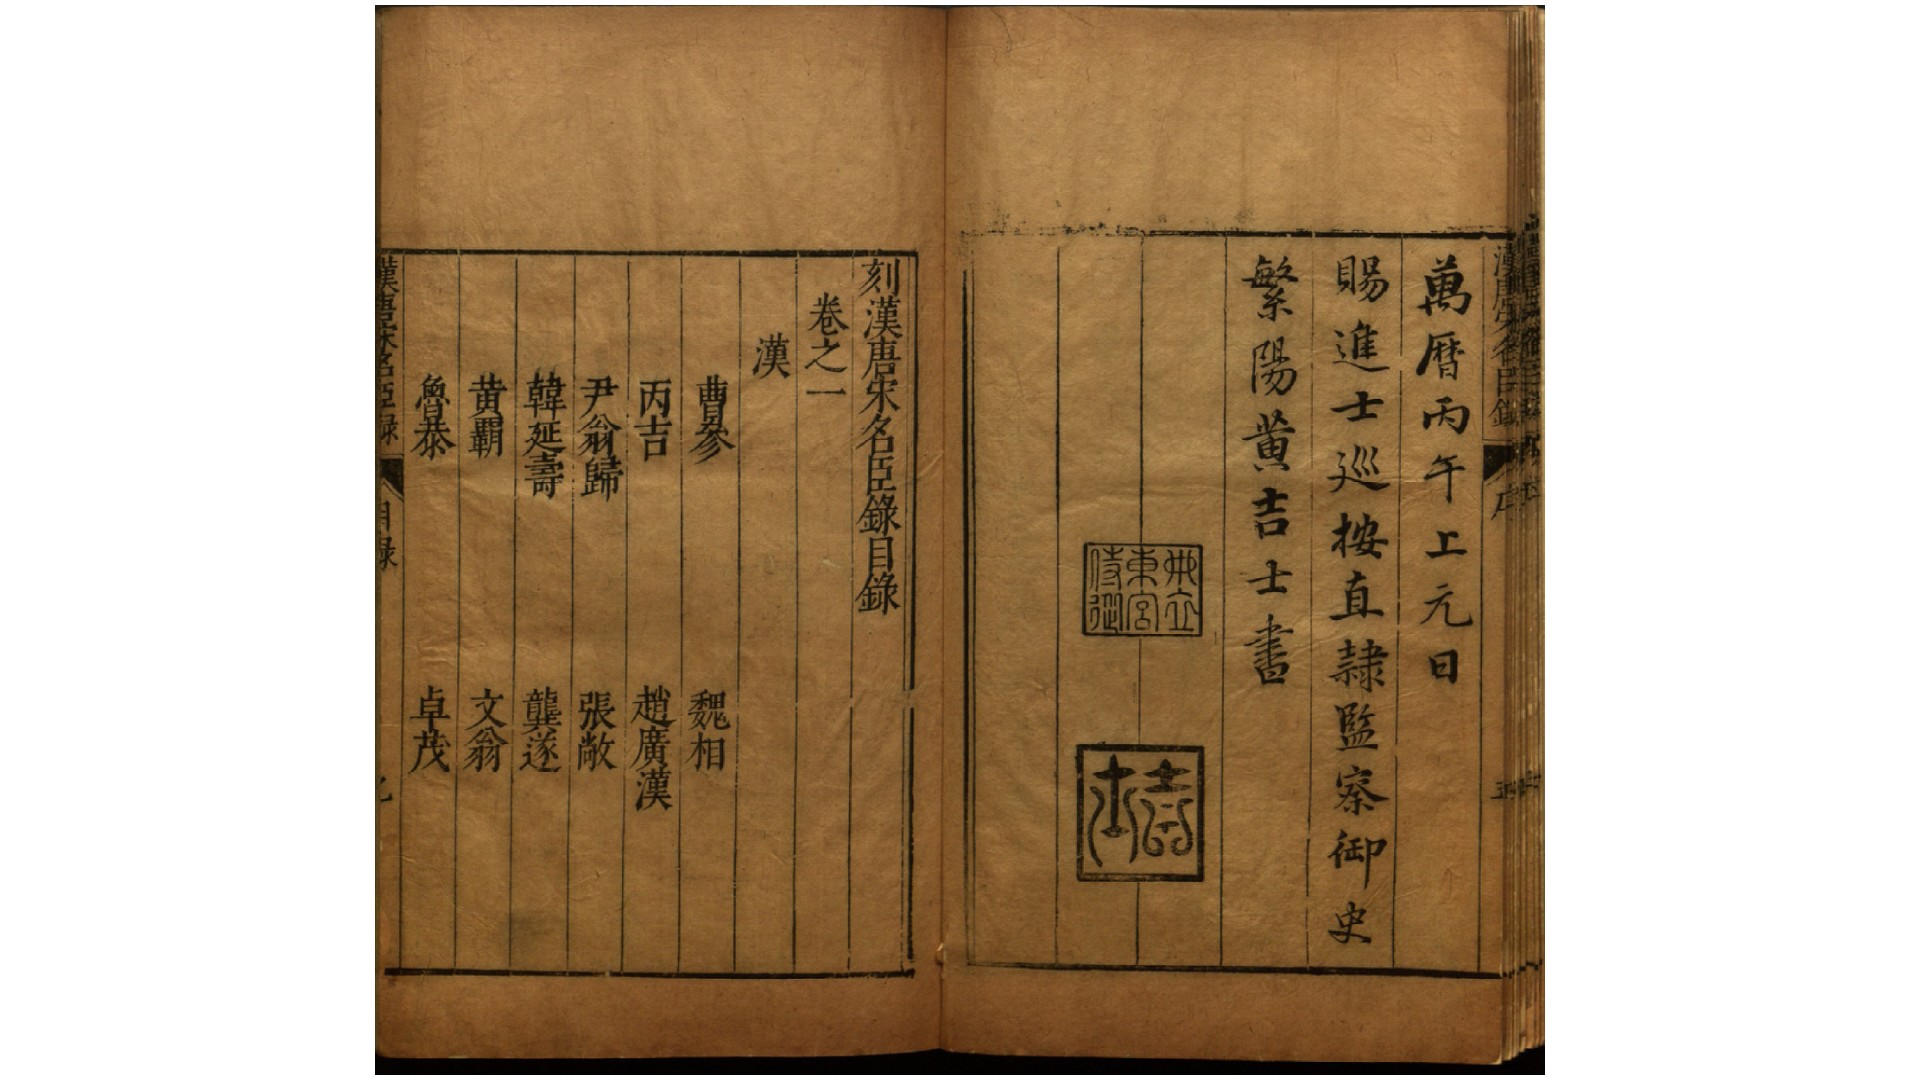 漢唐宋名臣錄 序 五
萬曆丙午上元日
賜進士巡按直隷監察御史
繁陽黄吉士書
冊立東宮侍從
刻漢唐宋名臣錄目錄
卷之一
漢
曹參 魏相
丙吉 趙廣漢
尹翁歸 張敞
韓延壽 龔遂
黄覇 文翁
魯恭 卓茂
漢唐宋名臣錄 目錄